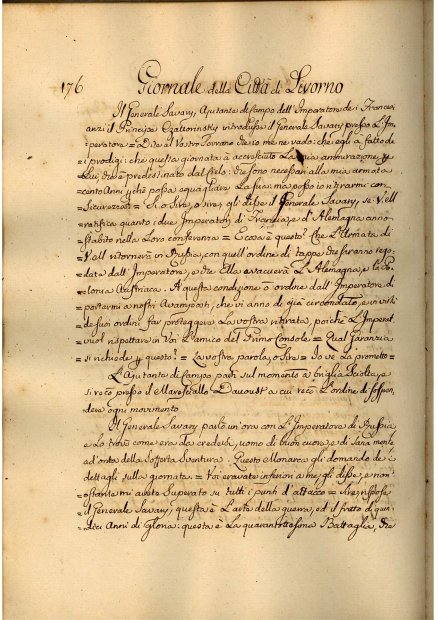 176 Giornale della Città di Livorno
Il Generale Savary, Ajutante di Campo dell'Imperatore de i Frances
anzi il Principe introdusse il Generale Savary presso L'Im
peratore = Dite al Vostro Sovrano che io me ne vado: che egli à fatto de
i prodigi: che questa giornata à accresciuto La mia ammirazione
Lui: predestinato dal Cielo: che sono necessari alla mia armata
Cento Anni perchè possa eguagliare La sua: ma posso io ritirarmi con
Sicurezza? = Si, o Sire, gli disse il Generale Savary, se V. M.
ratifica quanto i due Imperatori di Francia, e d'Alemagna anno
stabilito nella Loro conferenza = E cosa è questo? Che L'Armata di
V. M. ritornerà in Russia, con quell'ordine di tappe che saranno rego
late dall'Imperatore, e che Ella evacuerà L'Alemagna, e la Po
lonia Austriaca. A questa condizione ò ordine dall'Imperatore di
portarmi a nostri Avamposti, che vi anno di già circondato, e
de suoi ordini far proteggere La vostra ritirata, poichè L'Imperat.
vuol rispettare in Voi L'amico del Primo Console = Qual garanzia
si richiede per questo? = La vostra parola, o Sire = Io ve La prometto =
L'Ajutante di Campo partì sul momento a briglia sciolta, e
si recò presso il Maresciallo Davoust a cui recò L'ordine di sospen
dere ogni movimento
Il Generale Savary parlò un'ora con L'Imperatore di Russia
e Lo trovò come era Lo credeva, uomo di buon cuore, e di sana mente
ad'onta della Sofferta Sventura. Questo Monarca gli domandò de i
dettagli sulla giornata = Voi eravate inferiori a me, gli disse, e non
ostante mi avete Superato su tutti i punti d'attacco = Sire, rispose
il Generale Savary, questa è L'arte della guerra, ed il frutto di quin
dici Anni di Gloria: questa è La quarantesima Battaglia, che